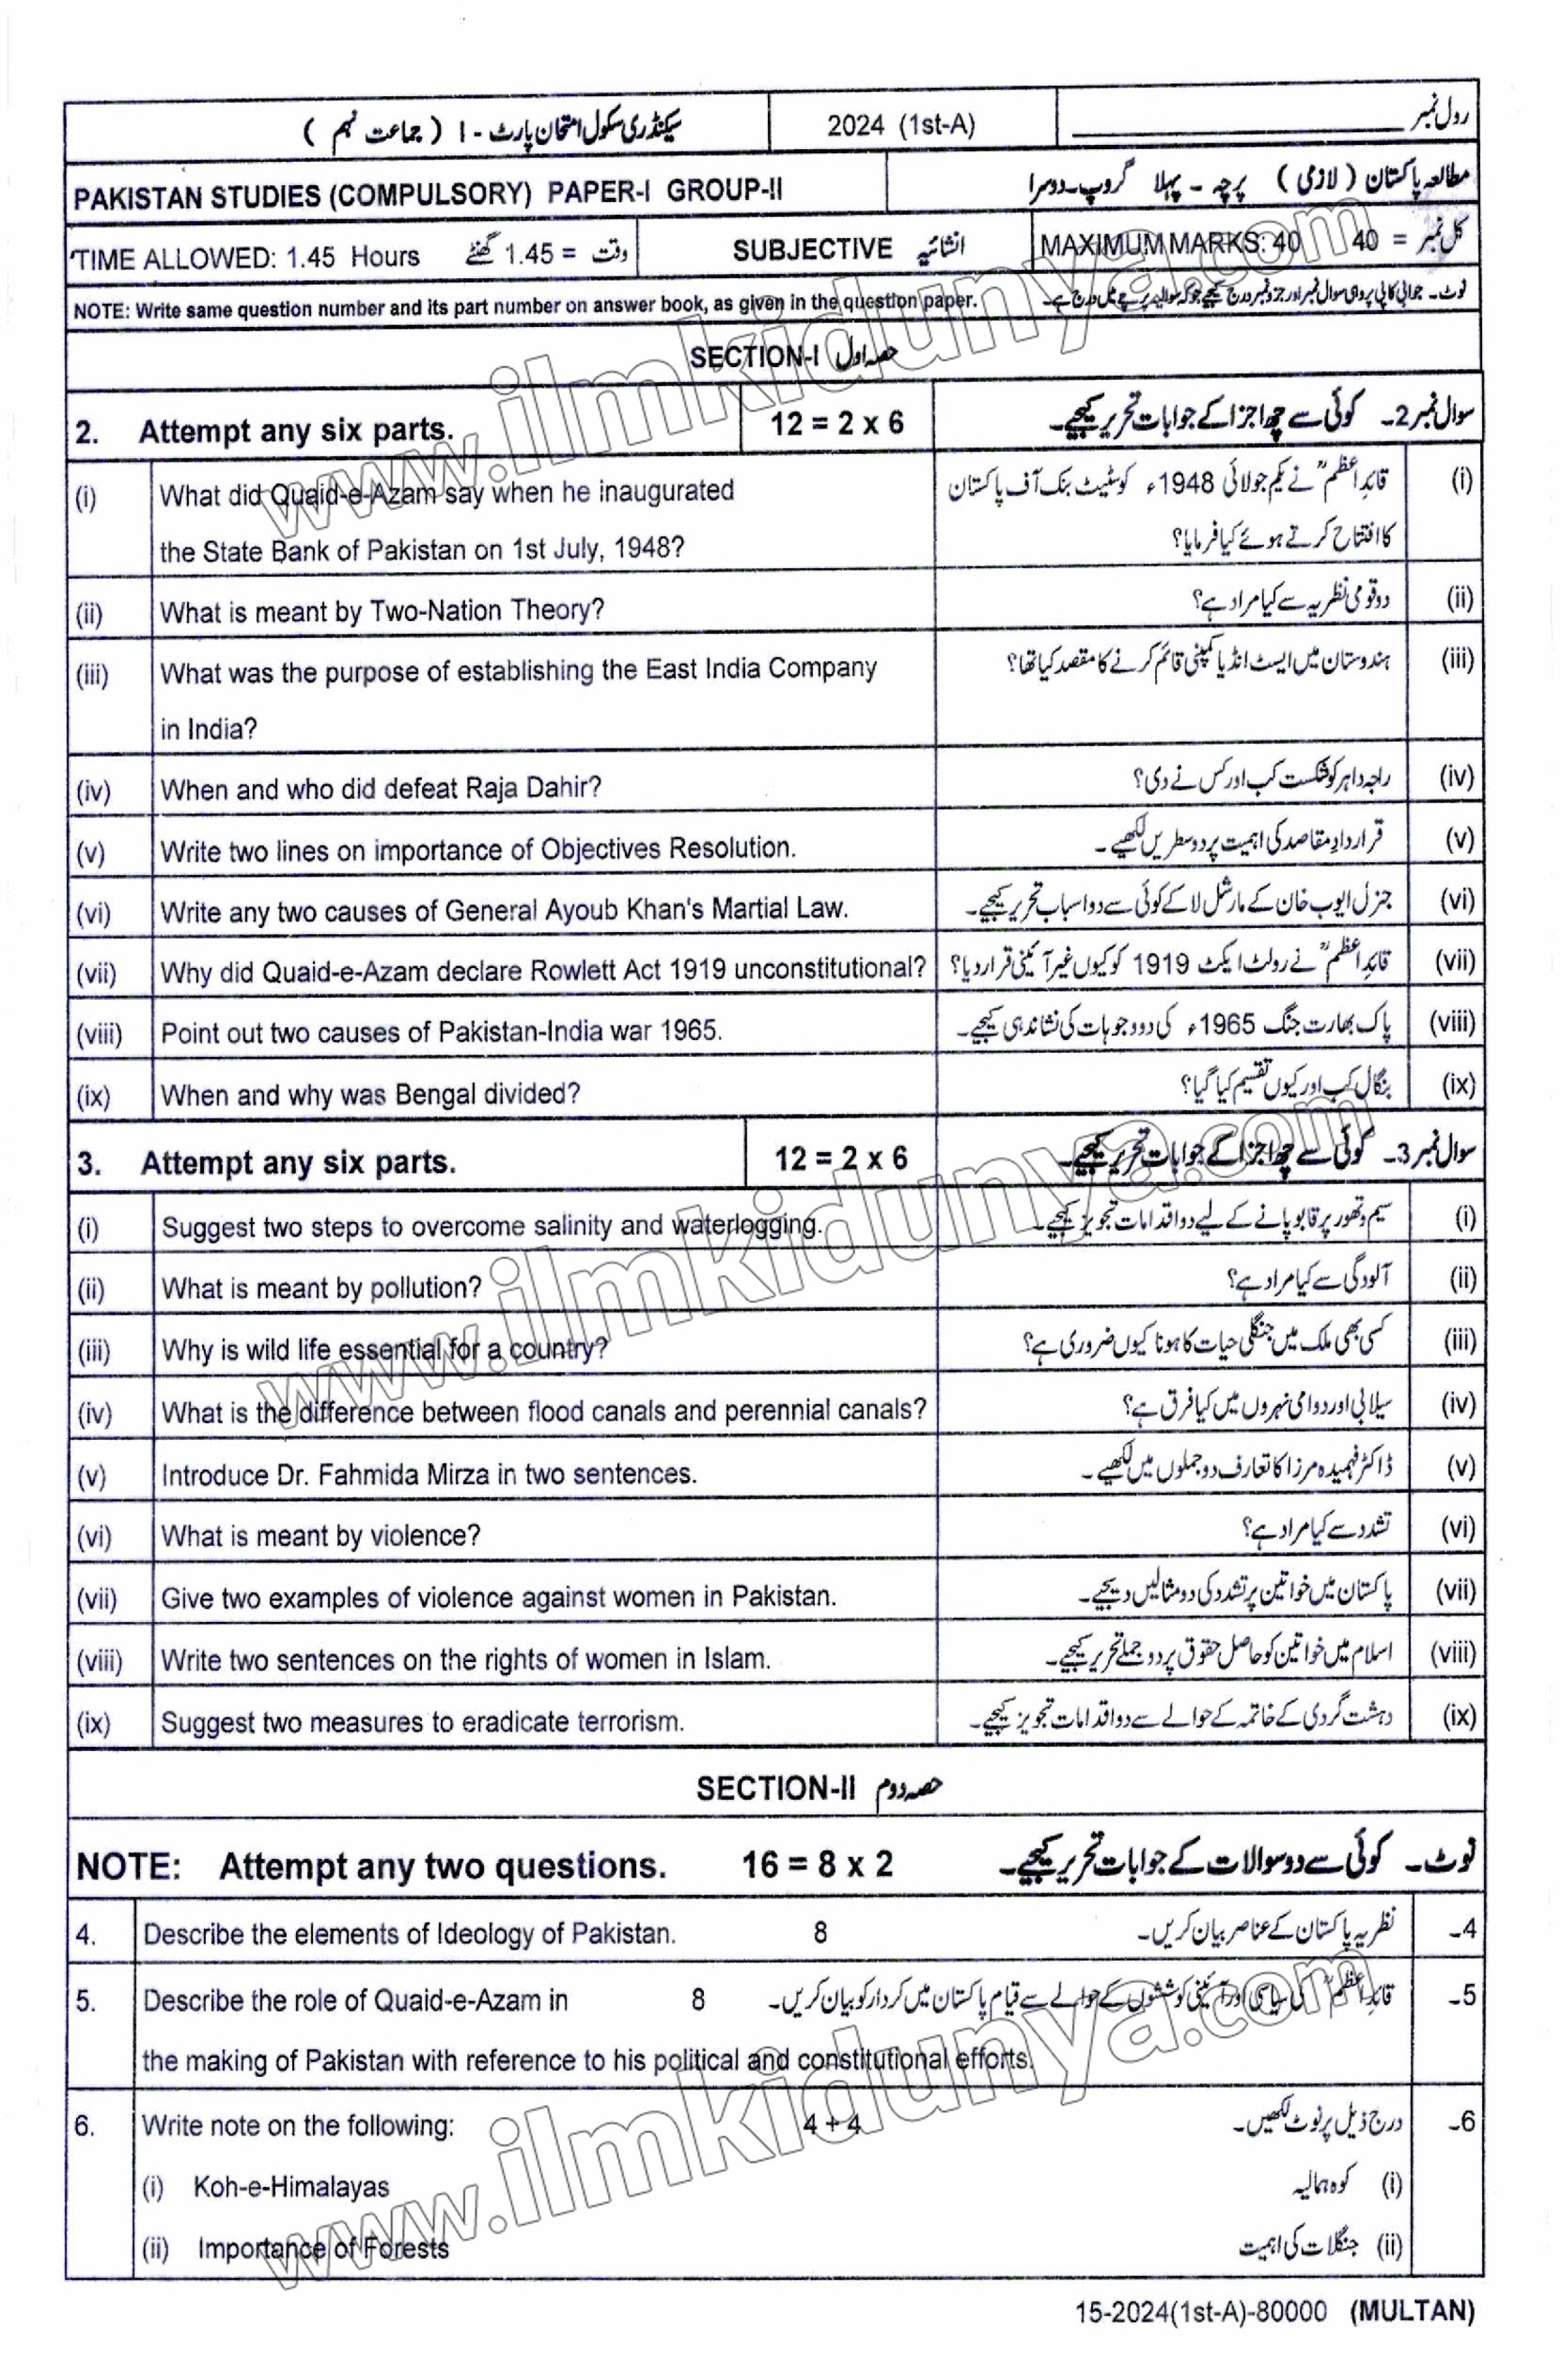 سیکنڈری سکول امتحان پارٹ - I ( جماعت نہم )
2024 (1st-A)
رول نمبر
PAKISTAN STUDIES (COMPULSORY) PAPER-I GROUP-II
مطالعہ پاکستان ( لازمی ) پرچہ - پہلا گروپ-دوسرا
TIME ALLOWED: 1.45 Hours
وقت = 1.45 گھنٹے
SUBJECTIVE انشائیہ
MAXIMUM MARKS: 40
کل نمبر = 40
NOTE: Write same question number and its part number on answer book, as given in the question paper.
نوٹ۔ جوابی کاپی پر وہی سوال نمبر اور جزو نمبر درج کیجیے جو کہ سوالیہ پرچے میں درج ہے۔
SECTION-I حصہ اول
2. Attempt any six parts.
12 = 2 x 6
سوال نمبر2۔ کوئی سے چھ اجزا کے جوابات تحریر کیجیے۔
(i) What did Quaid-e-Azam say when he inaugurated
the State Bank of Pakistan on 1st July, 1948?
(i) قائدِ اعظمؒ نے یکم جولائی 1948ء کو سٹیٹ بنک آف پاکستان
کا افتتاح کرتے ہوئے کیا فرمایا؟
(ii) What is meant by Two-Nation Theory?
(ii) دو قومی نظریہ سے کیا مراد ہے؟
(iii) What was the purpose of establishing the East India Company
in India?
(iii) ہندوستان میں ایسٹ انڈیا کمپنی قائم کرنے کا مقصد کیا تھا؟
(iv) When and who did defeat Raja Dahir?
(iv) راجہ داہر کو شکست کب اور کس نے دی؟
(v) Write two lines on importance of Objectives Resolution.
(v) قراردادِ مقاصد کی اہمیت پر دو سطریں لکھیے۔
(vi) Write any two causes of General Ayoub Khan's Martial Law.
(vi) جنرل ایوب خان کے مارشل لا کے کوئی سے دو اسباب تحریر کیجیے۔
(vii) Why did Quaid-e-Azam declare Rowlett Act 1919 unconstitutional?
(vii) قائدِ اعظمؒ نے رولٹ ایکٹ 1919 کو کیوں غیر آئینی قرار دیا؟
(viii) Point out two causes of Pakistan-India war 1965.
(viii) پاک بھارت جنگ 1965ء کی دو وجوہات کی نشاندہی کیجیے۔
(ix) When and why was Bengal divided?
(ix) بنگال کب اور کیوں تقسیم کیا گیا؟
3. Attempt any six parts.
12 = 2 x 6
سوال نمبر3۔ کوئی سے چھ اجزا کے جوابات تحریر کیجیے۔
(i) Suggest two steps to overcome salinity and waterlogging.
(i) سیم و تھور پر قابو پانے کے لیے دو اقدامات تجویز کیجیے۔
(ii) What is meant by pollution?
(ii) آلودگی سے کیا مراد ہے؟
(iii) Why is wild life essential for a country?
(iii) کسی بھی ملک میں جنگلی حیات کا ہونا کیوں ضروری ہے؟
(iv) What is the difference between flood canals and perennial canals?
(iv) سیلابی اور دوامی نہروں میں کیا فرق ہے؟
(v) Introduce Dr. Fahmida Mirza in two sentences.
(v) ڈاکٹر فہمیدہ مرزا کا تعارف دو جملوں میں لکھیے۔
(vi) What is meant by violence?
(vi) تشدد سے کیا مراد ہے؟
(vii) Give two examples of violence against women in Pakistan.
(vii) پاکستان میں خواتین پر تشدد کی دو مثالیں دیجیے۔
(viii) Write two sentences on the rights of women in Islam.
(viii) اسلام میں خواتین کو حاصل حقوق پر دو جملے تحریر کیجیے۔
(ix) Suggest two measures to eradicate terrorism.
(ix) دہشت گردی کے خاتمہ کے حوالے سے دو اقدامات تجویز کیجیے۔
SECTION-II حصہ دوم
NOTE: Attempt any two questions. 16 = 8 x 2
نوٹ۔ کوئی سے دو سوالات کے جوابات تحریر کیجیے۔
4. Describe the elements of Ideology of Pakistan. 8
4۔ نظریہ پاکستان کے عناصر بیان کریں۔
5. Describe the role of Quaid-e-Azam in 8
5۔ قائدِ اعظمؒ کی سیاسی اور آئینی کوششوں کے حوالے سے قیام پاکستان میں کردار کو بیان کریں۔
the making of Pakistan with reference to his political and constitutional efforts.
6. Write note on the following: 4 + 4
6۔ درج ذیل پر نوٹ لکھیں۔
(i) Koh-e-Himalayas
(i) کوہ ہمالیہ
(ii) Importance of Forests
(ii) جنگلات کی اہمیت
15-2024(1st-A)-80000 (MULTAN)
www.ilmkidunya.com
www.ilmkidunya.com
www.ilmkidunya.com